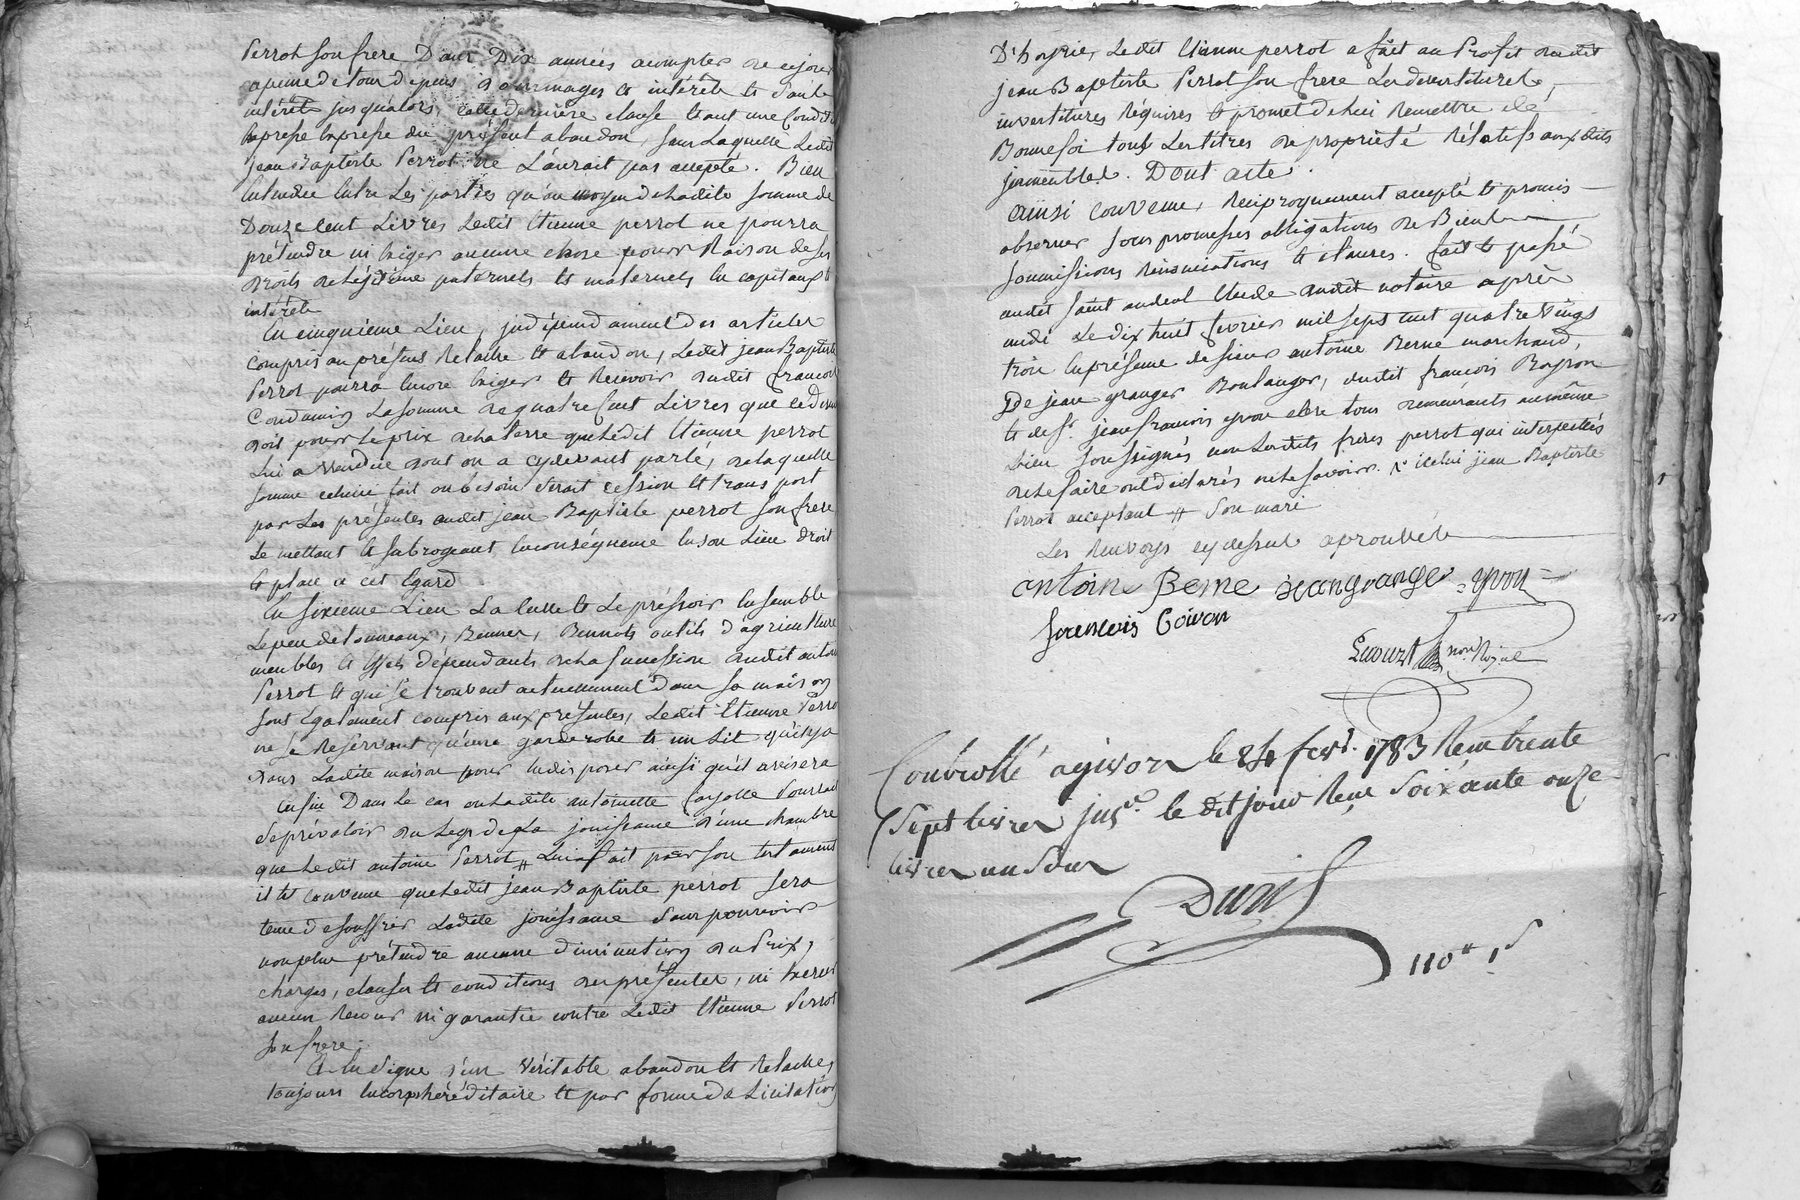 Perrot son frere Dans Dix années acompter de ce jour
apeine de tous depens dommages et intérêts et Sauf
intérêts jusqualors, cette derniere clause etant une Condit
expresse du présent abandon, sans Laquelle Ledit
jean Baptiste Perrot ne L'aurait pas accepté. Bien
Entendu Entre Les parties qu'au moyen de Ladite somme de
Douze Cent Livres Ledit Etienne perrot ne pourra
prétendre ni Exiger aucune chose pour Raison de ses
Droits de Légitime paternels et maternels En capitaux et
intérêts
En cinquième Lieu, jndépendament Des articles
compris au présent Relache et abandon, Ledit jean Baptiste
Perrot pourra Encore Exiger et Recevoir dudit françois
Condamin La somme de quatre Cent Livres que ce der
doit pour Le prix de La terre que Ledit Etienne perrot
Lui a Vendue dont on a cydevant parlé, de Laquelle
somme celuici fait ou besoin serait cession et transport
par Les présentes audit jean Baptiste perrot son frere
Le mettant et subrogeant En conséquence En son Lieu droit
et place a cet Egard
En sixieme Lieu La Cuve et Le préssoir Ensemble
Le peu de tonneaux, Bennes, Bennots outils d'agriculture
meubles et Effets dépendants de La succession dudit antoi
Perrot et qui se trouvent actuellement Dans sa maison
sont Également compris aux présentes, Ledit Etienne Perro
ne se Reservant qu'une garderobe et un Lit qu'il y a
dans Ladite maison pour En disposer ainsi qu'il avisera
Enfin Dans Le cas ou Ladite antoinette Fayolle Pourrait
se prévaloir du Legs de La jouissance d'une chambre
que Ledit antoine Perrot # Lui a fait par son testament
il Est convenu que Ledit jean Baptiste perrot sera
tenu de souffrir Ladite jouissance Sans pouvoir
non plus prétendre aucune diminution du Prix,
charges, clauses et conditions des présentes, ni Exercer
aucun Recours ni garantie contre Ledit Etienne Perrot
son frere.
Et En Signe d'un Véritable abandon et Relache,
toujours En corps héréditaire et par forme de Licitation
D'hoyrie, Ledit Etienne perrot a fait au Profit dudit
jean Baptiste Perrot son frere Les devestitures,
investitures Réquises et promet de Lui Remettre de
Bonne foi tous Les titres de propriété Rélatifs auxdits
jmmeubles. Dont acte.
Ainsi Convenu, Réciproquement accepté et promis
observer sous promesses obligations de Biens
soumissions Rénonciations et clauses. fait et passé
audit saint andeol Etude dudit notaire après
midi Le dix huit fevrier mil sept cent quatre vingt
trois En présence de sieurs antoine Berne marchand,
De jean granger Boulanger, dudit françois
et de sr. jean françois yvon clerc tous demeurants au même
Lieu soussignés non Lesdits freres perrot qui interpellés
de Le faire ont déclarés ne Le savoir. icelui jean Baptiste
Perrot acceptant # son mari
Les Renvoys cydessus aprouvés
antoine Berne jean grange yvon
Controllé agivors le 24 fevr. 1783 Reçu trente
Sept livres le dit jour Reçu Soixante onze
livres un Sou
110# 1s